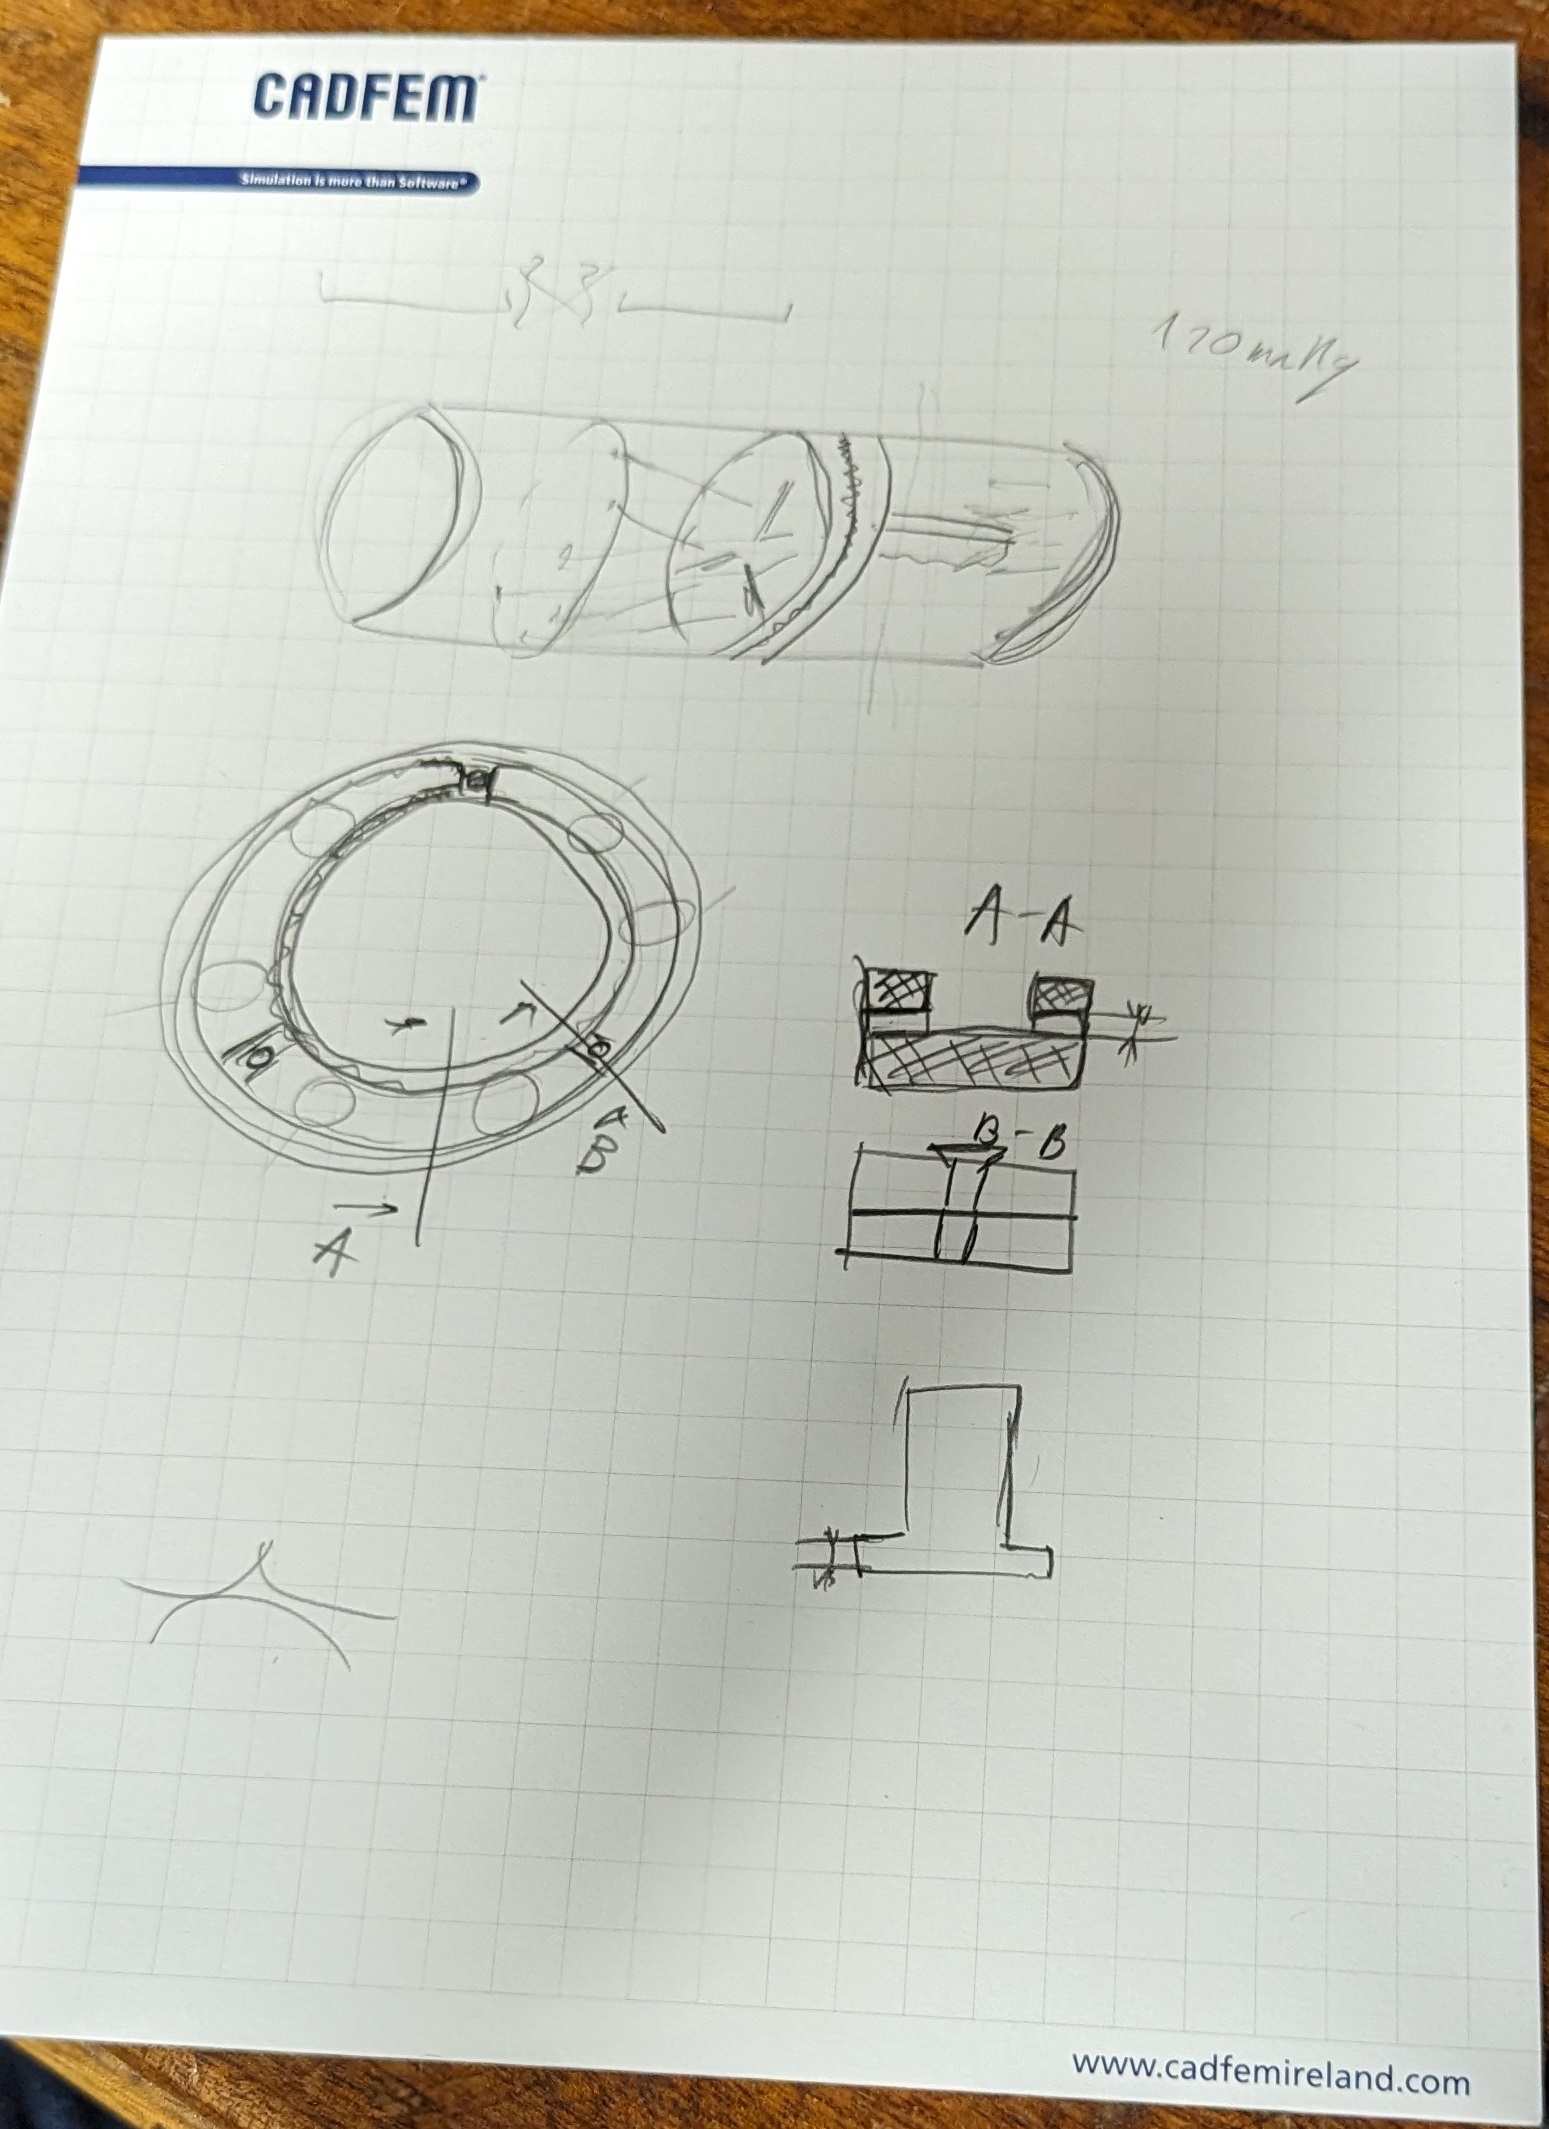 CADFEM®
Simulation is more than Software®
120mmHg
A-A
B-B
B
A
www.cadfemireland.com